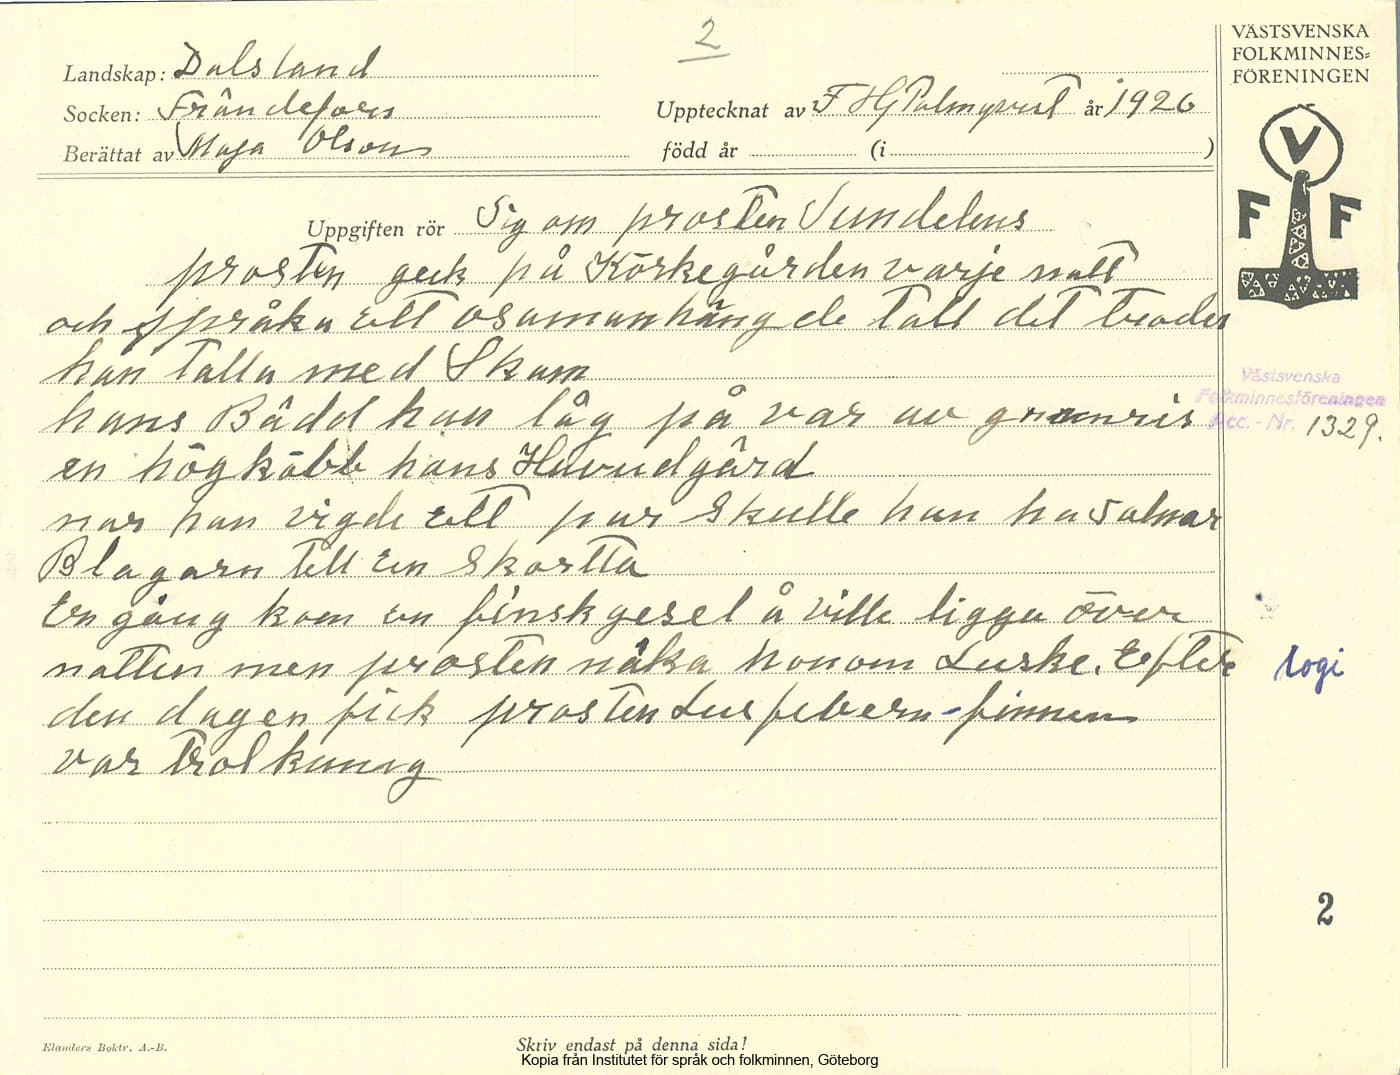 2
VÄSTSVENSKA
FOLKMINNES=
FÖRENINGEN
V
F F
Landskap: Dalsland
Socken: Frändefors
Upptecknat av F Hj Palmqvist år 1926
Berättat av Maja Olson
född år (i )
Uppgiften rör Sig om prosten Sundelens
prosten geck på Körkegården varje natt
och språka ett osamanhängde tall det trodes
han talla med Skam
hans Bädd han låg på var av granris
en högkäbb hans Huvudgärd
nar han vigde ett par skulle han ha 5 alnar
Blagarn tell en skortta
En gång kom en finsk gesel å ville ligga över
natten men prosten näka honom Luske. Efter
den dagen fick prosten Lusfebern - finnen
var trolkunig
Västsvenska
Folkminnesföreningen
Acc. - Nr. 1329.
logi
2
Elanders Boktr. A.-B.
Skriv endast på denna sida!
Kopia från Institutet för språk och folkminnen, Göteborg